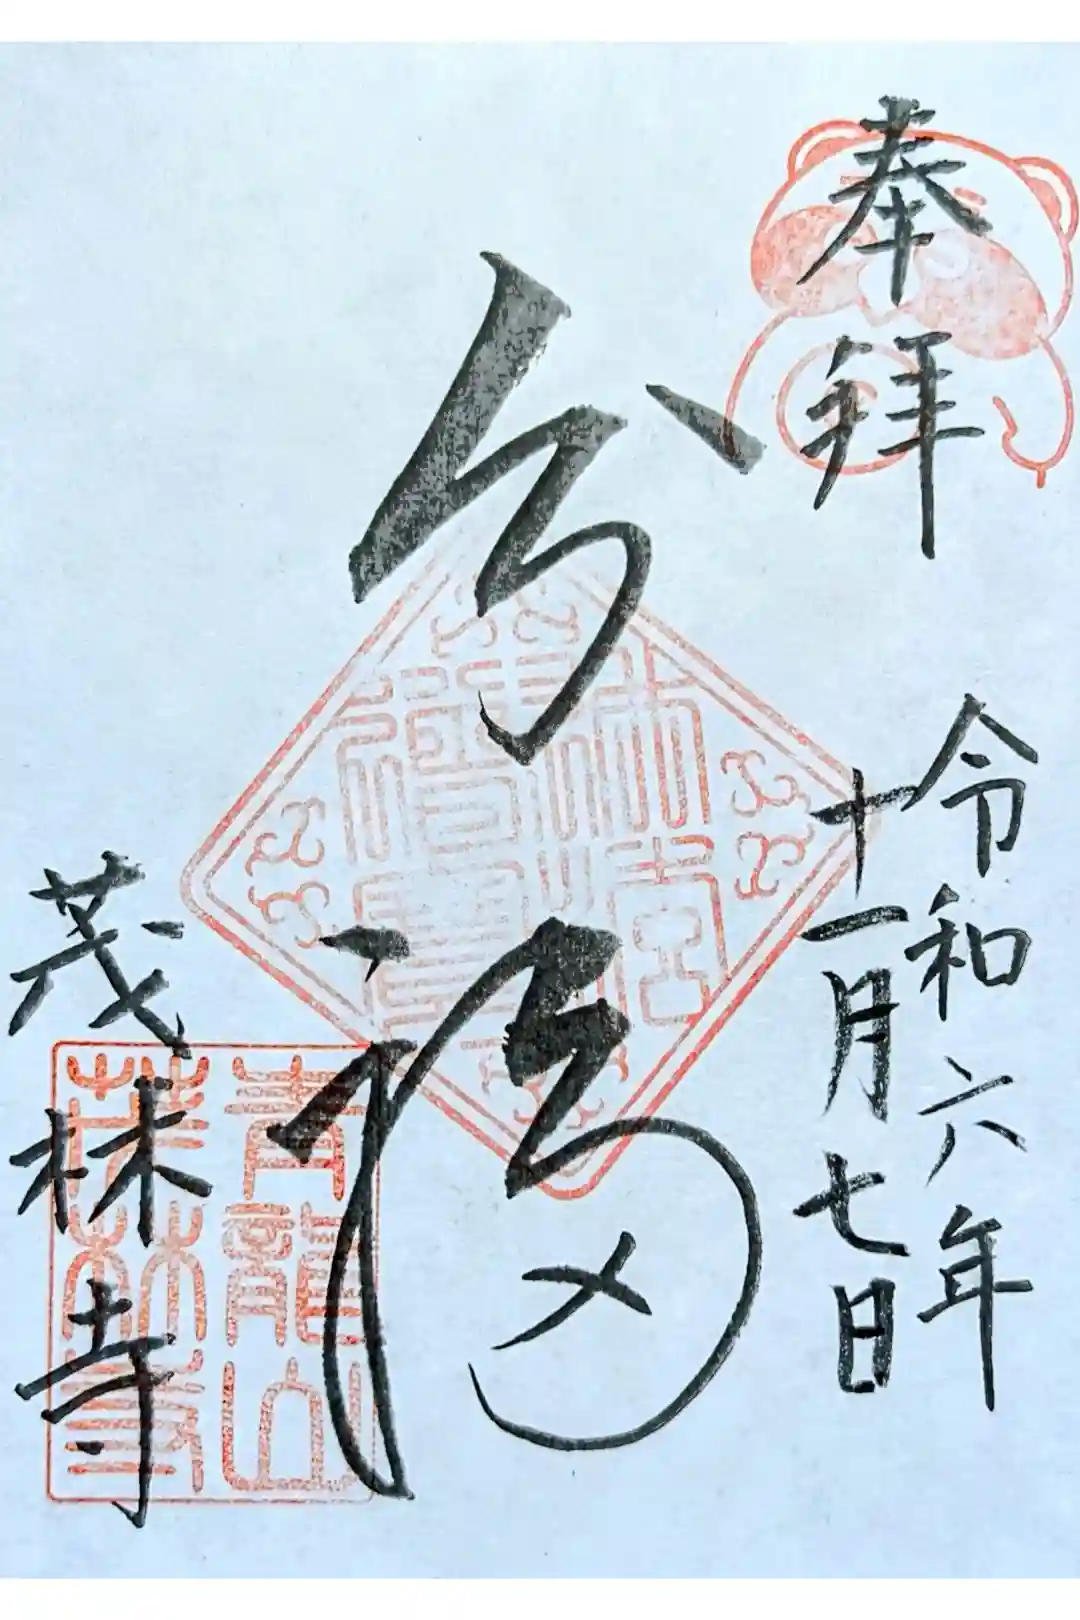 奉拜
令和六年
十一月七日
分福
茂林寺
青龍山
茂林寺